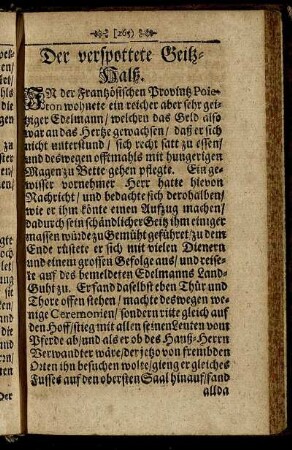 [265]
Der verspottete Geiltz-
Halß.
IN der Frantzösischen Provintz Poic-
ton wohnete ein reicher aber sehr gei-
tziger Edelmann/ welchen das Geld also
war an das Hertze gewachsen/ daß er sich
nicht unterstund/ sich recht satt zu essen/
und deswegen offtemahls mit hungerigen
Magen zu Bette gehen pflegte. Ein ge-
wisser vornehmer Herr hatte hievon
Nachricht/ und bedachte sich derohalben/
wie er ihm könte einen Auffzug machen/
dadurch sein schändlicher Geitz ihm einiger
massen würde zu Gemüht geführet/ zu dem
Ende rüstete er sich mit vielen Dienern
und einem grossen Gefolge aus/ und reise-
te auf des bemeldeten Edelmanns Land-
Guht zu. Er fand daselbst eben Thür und
Thore offen stehen/ machte deswegen we-
nige Ceremonien/ sondern ritte gleich auf
den Hoff/ stieg mit allen seinen Leuten vom
Pferde ab/ und als er ob des Hauß-Herrn
Verwandter wäre/ der jetzo von frembden
Orten ihn besuchen wolte/ gieng er gleiches
Fusses auf den obersten Saal hinauf/ fand
allda